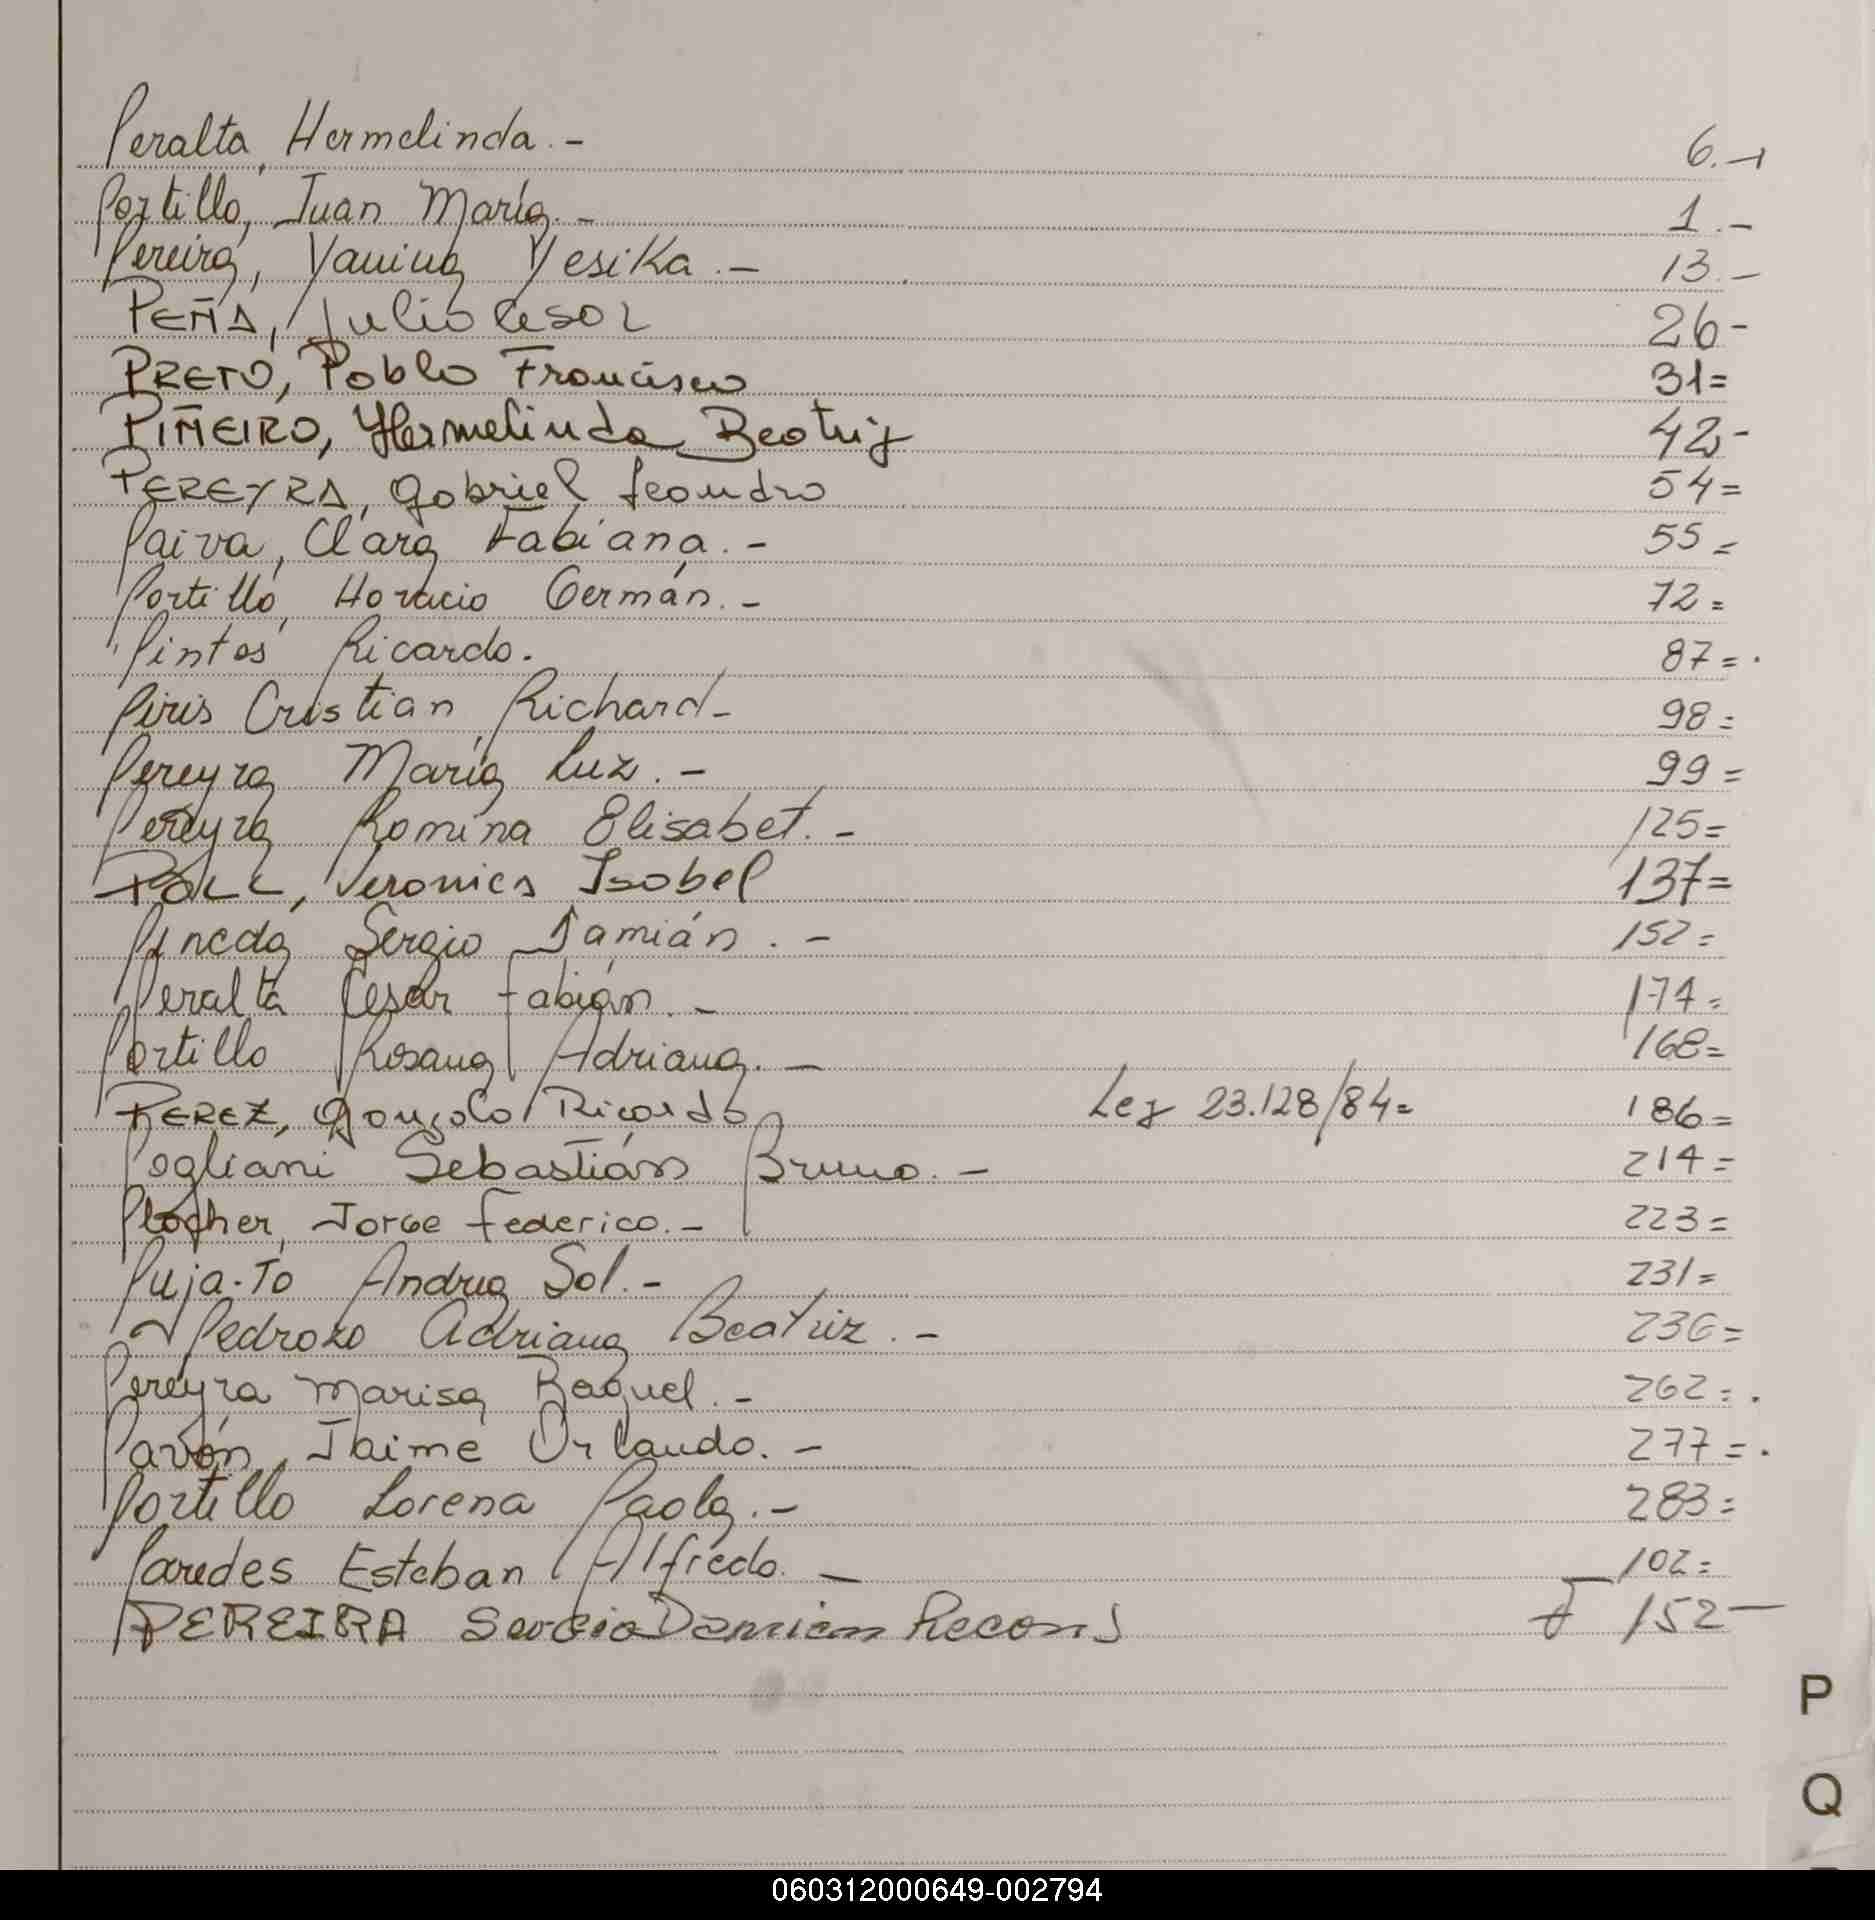 Peralta, Hermelinda.- 6.-
Portillo, Juan María.- 1.-
Pereira, Yanina Yesika.- 13.-
PEÑA, Julio Cesar 26-
PRETO, Pablo Francisco 31=
PIÑEIRO, Hermelinda Beatriz 42-
PEREYRA, Gabriel Leandro 54=
Paiva, Clara Fabiana.- 55=
Portillo, Horacio Germán.- 72=
Pintos Ricardo. 87=.
Piris Cristian Richard- 98=
Pereyra María Luz.- 99=
Pereyra Romina Elisabet.- 125=
POLL, Veronica Isabel 137=
Pineda Sergio Damián.- 152=
Peralta Cesar Fabián.- 174=
Portillo Rosana Adriana.- 168=
PEREZ, Gonzalo Ricardo Ley 23.128/84= 186=
Pogliani Sebastián Bruno.- 214=
Plocher, Jorge Federico.- 223=
Puja-To Andrea Sol.- 231=
Pedrozo Adriana Beatriz.- 236=
Pereyra Marisa Raquel.- 262=.
Pavón, Jaime Orlando.- 277=.
Portillo Lorena Paola.- 283=
Paredes Esteban Alfredo.- 102=
PEREIRA Sergio Damian Recons 152-
P
Q
060312000649-002794